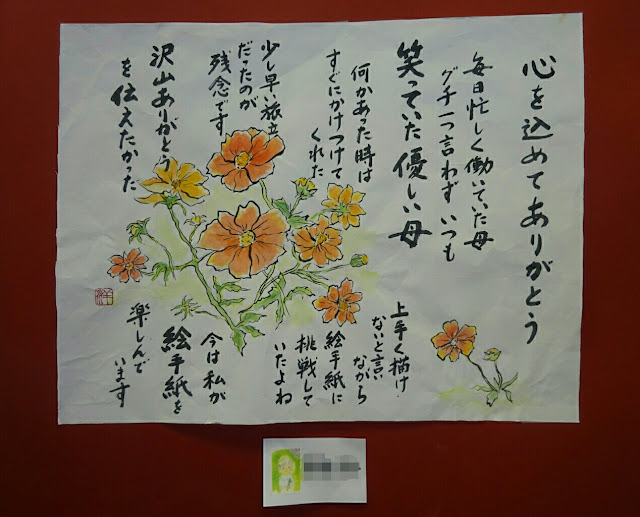 心を込めてありがとう
毎日忙しく働いていた母
グチ一つ言わず いつも
笑っていた優しい母
何かあった時は
すぐにかけつけて
くれた
少し早い旅立
だったのが
残念です
沢山ありがとう
を伝えたかった
上手く描け
ないと言い
ながら
絵手紙に
挑戦して
いたよね
今は私が
絵手紙を
楽しんで
います